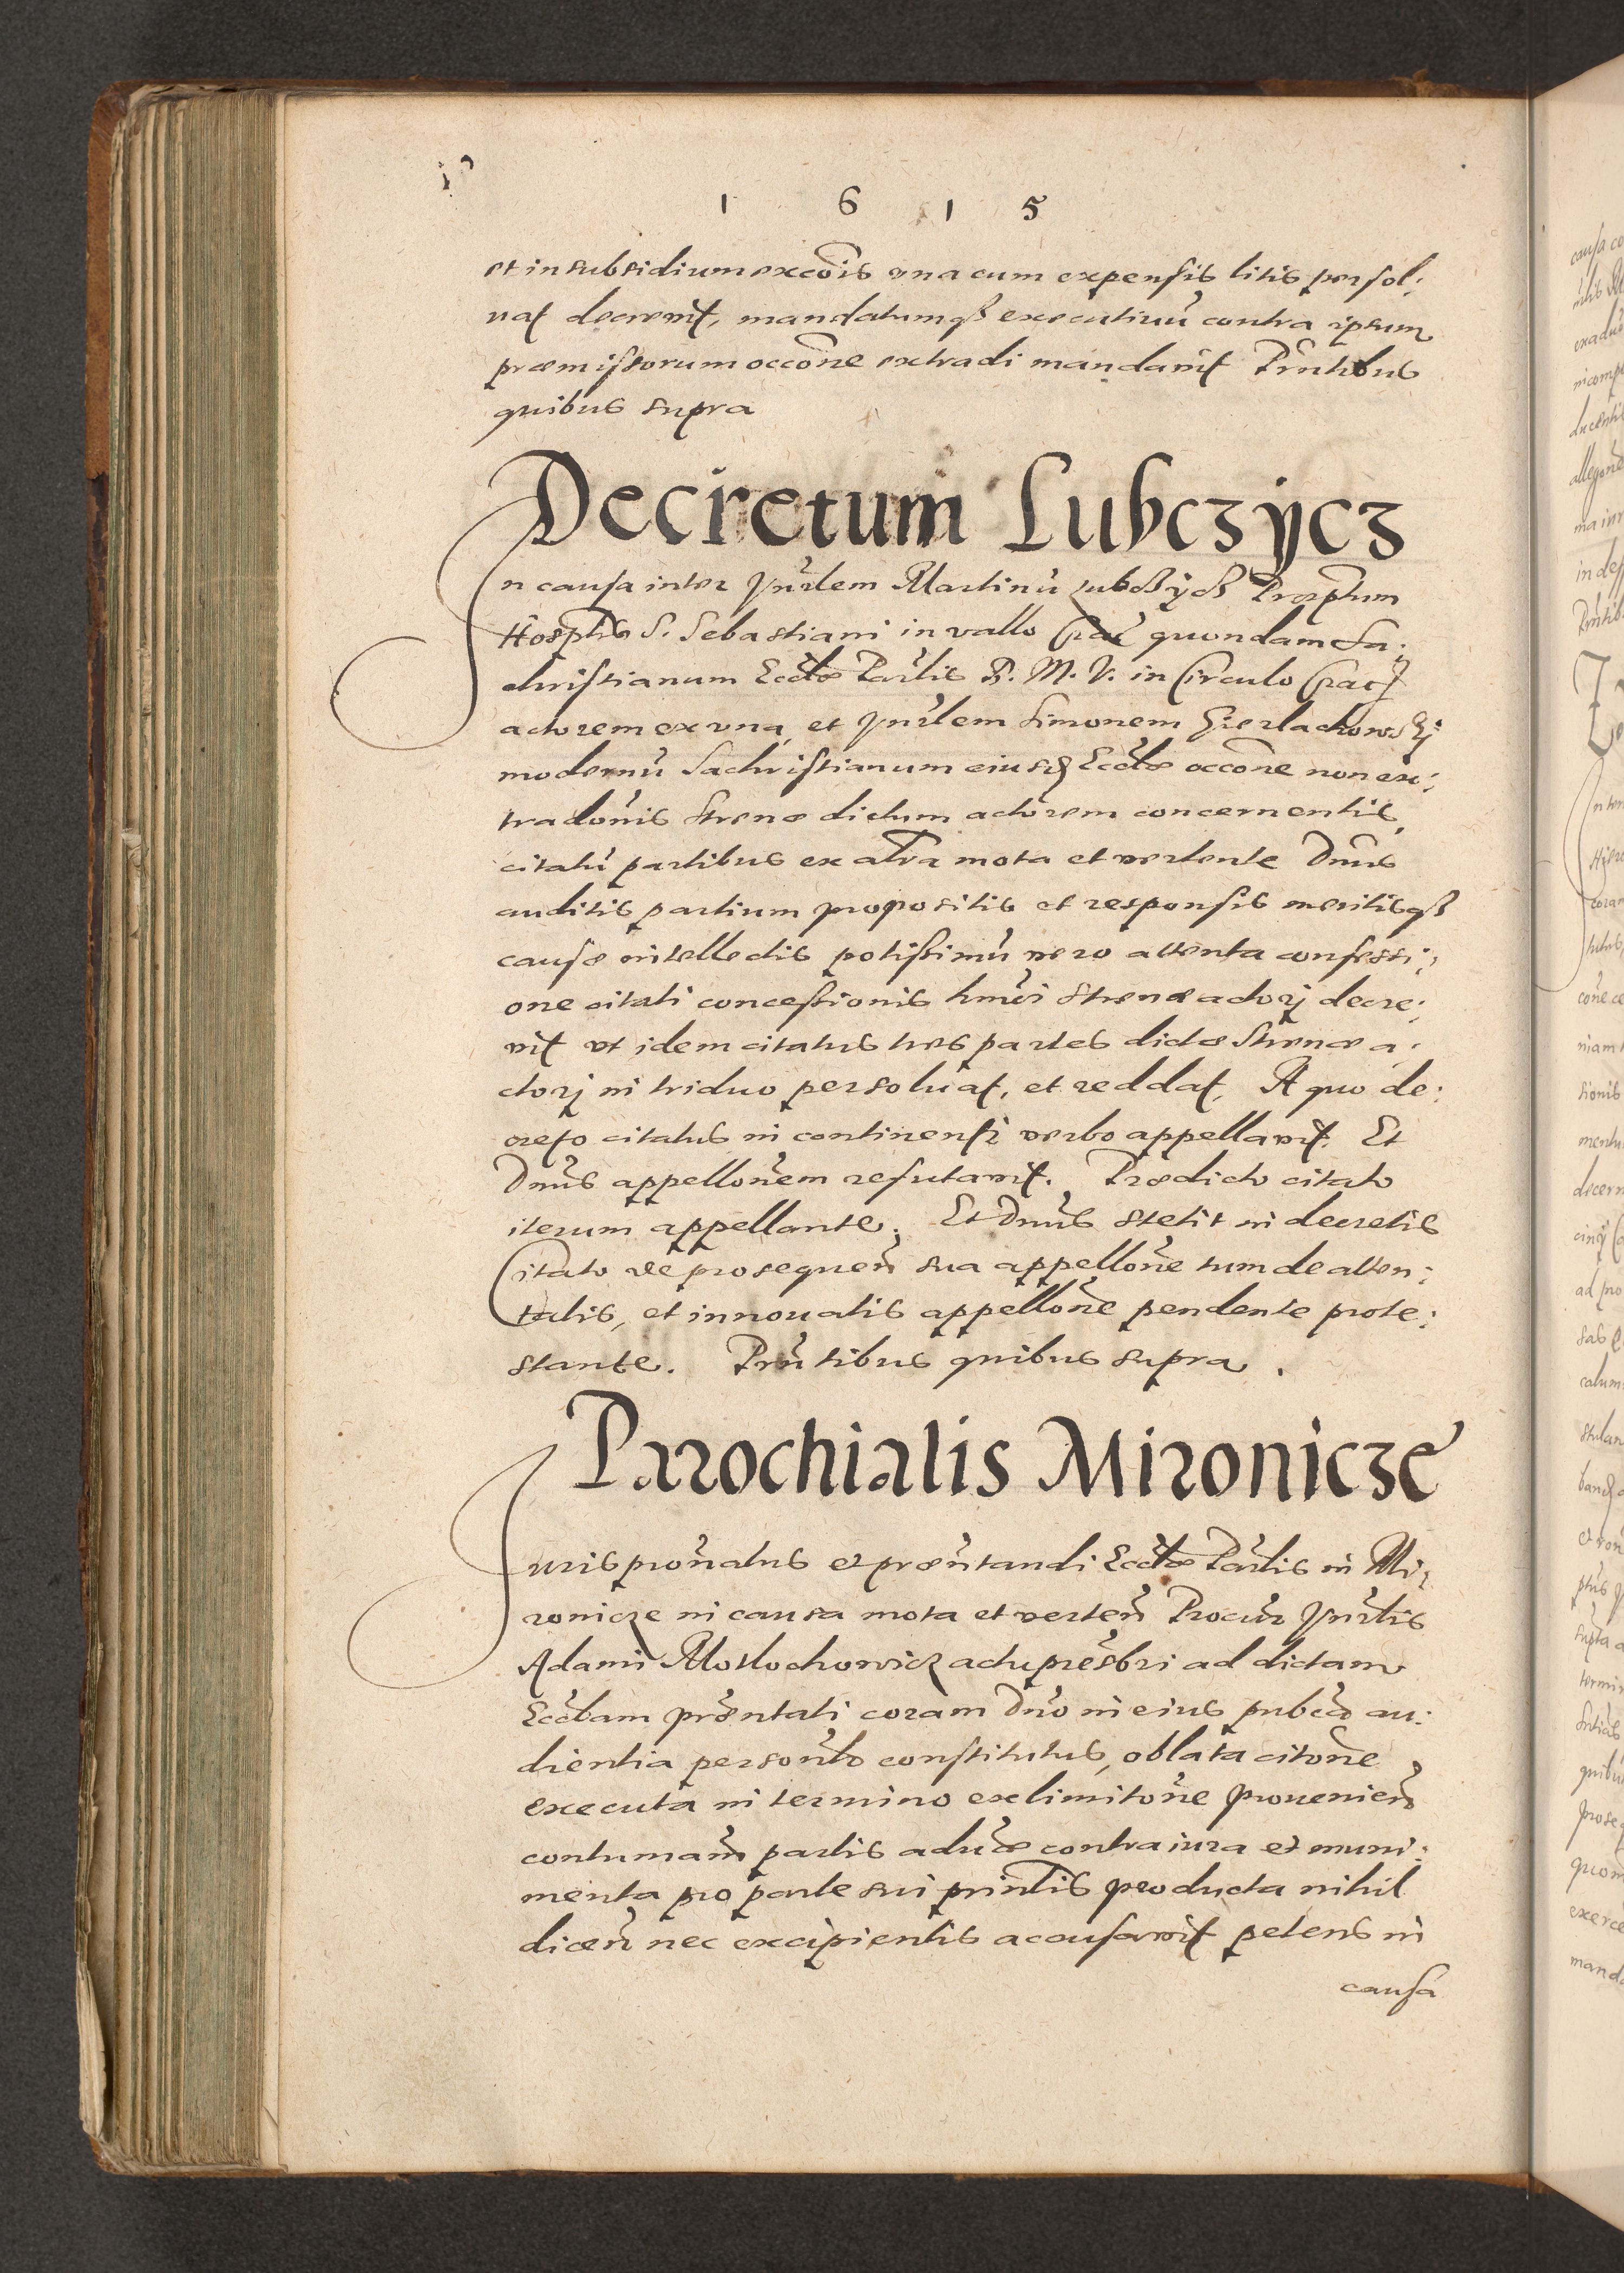 1 6 1 5
et in subsidium excōis una cum expensis litis persol:
uat decrevit, mandatumq3 executiuū contra ipsum
præmissorum occōne extradi mandavit Prn̄tibus
quibus supra
Decretum Lubczÿcz
In causa inter Vn̄rlem Martinū Lubczÿcz Præptum
Hosptlis S. Sebastiani in vallo Crac quondam Sa:
christianum Eccłæ Parlis B. M. V. in Circulo Crac
actorem ex una, et Vn̄rlem Simonem Gierlachowskj
modernū Sachristianum eiusd Eccłæ occōne non ex:
tradōnis Strenæ dictum actorem concernentis,
citatū partibus ex altra mota et vertente Dnūs
auditis partium propositis et responsis meritisq3
causæ intellectis potissimū vero attenta confessi:
one citati concessionis hmōi Strenæ actorj decre:
vit ut idem citatus tres partes dictæ Strenæ a:
ctorj in triduo persoluat, et reddat, A quo de:
creto citatus in continenti verbo appellavit. Et
Dnūs appellōnem refutavit. Prædicto citato
iterum appellante. Et Dnūs stetit in decretis
Citato de prosequen̄ sua appellōne tum de atten:
tatis, et innouatis appellōne pendente prote:
stante. Prn̄tibus quibus supra.
Parochialis Mironicze
Juris pron̄atus et præn̄tandi Eccłæ Parlis in Mi:
ronicze in causa mota et verten̄ Procur̄ Vn̄rlis
Adami Moslochowicz actu presbri ad dictam
Eccłam prēntati coram Dnō in eius pubca au:
dientia personlr constitutus, oblata citōne
executa in termino ex limitōne prouenien̄
contumam̄ partis aduæ contra iura et muni:
menta pro parte sui prin̄lis producta nihil
dicen̄ nec excipientis accusavit petens in
causa